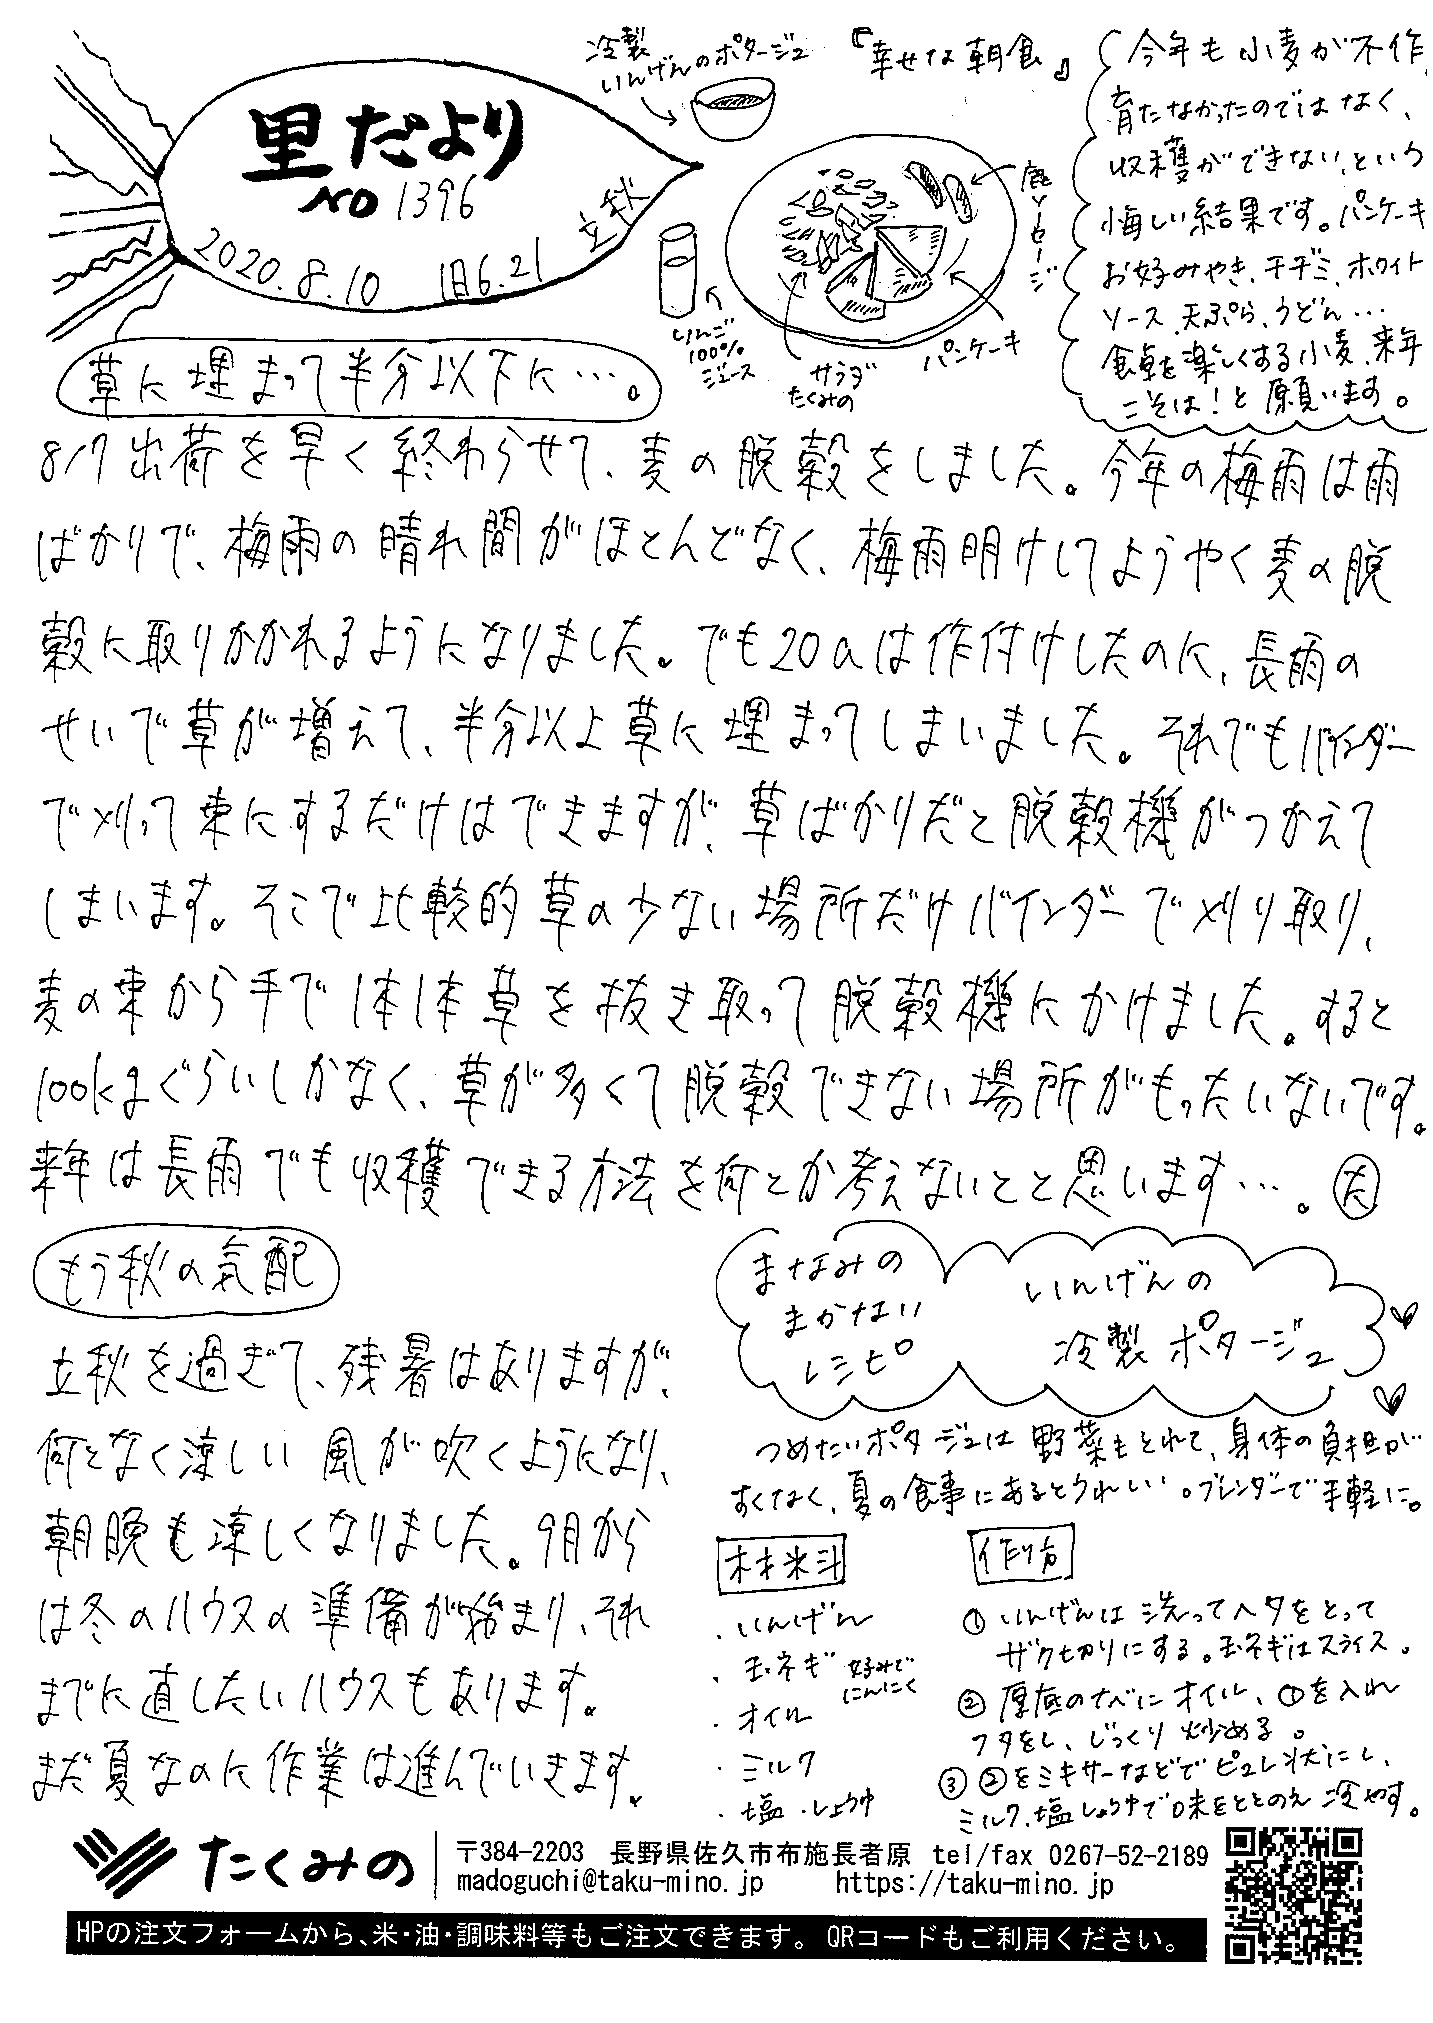 里だより
NO 1396
立秋
2020.8.10 旧6.21
冷製
いんげんのポタージュ
『幸せな朝食』
鹿ソーセージ
りんご
100%
ジュース
サラダ
たくみの
パンケーキ
今年も小麦が不作。
育たなかったのではなく、
収穫ができない、という
悔しい結果です。パンケーキ
お好みやき、チヂミ、ホワイト
ソース、天ぷら、うどん…
食卓を楽しくする小麦、来年
こそは!と願います。
草に埋まって半分以下に…。
8/7 出荷を早く終わらせて、麦の脱穀をしました。今年の梅雨は雨
ばかりで、梅雨の晴れ間がほとんどなく、梅雨明けしてようやく麦の脱
穀に取りかかれるようになりました。でも20aは作付けしたのに、長雨の
せいで草が増えて、半分以上草に埋まってしまいました。それでもバインダー
で刈って束にするだけはできますが、草ばかりだと脱穀機がつかえて
しまいます。そこで比較的草の少ない場所だけバインダーで刈り取り、
麦の束から手で1本1本草を抜き取って脱穀機にかけました。すると
100kgぐらいしかなく、草が多くて脱穀できない場所がもったいないです。
来年は長雨でも収穫できる方法を何とか考えないとと思います…。た
もう秋の気配
立秋を過ぎて、残暑はありますが、
何となく涼しい風が吹くようになり、
朝晩も涼しくなりました。9月から
は冬のハウスの準備が始まり、それ
までに直したいハウスもあります。
まだ夏なのに作業は進んでいきます。
まなみの
まかない
レシピ
いんげんの
冷製ポタージュ
つめたいポタージュは野菜もとれて、身体の負担が
すくなく、夏の食事にあるとうれしい。ブレンダーで手軽に。
材料
・いんげん
・玉ネギ 好みで
にんにく
・オイル
・ミルク
・塩・しょうゆ
作り方
① いんげんは洗ってヘタをとって
ザク切りにする。玉ネギはスライス。
② 厚底のナベにオイル、①を入れ
フタをし、じっくり炒める。
③ ②をミキサーなどでピュレ状にし、
ミルク、塩しょうゆで味をととのえ冷やす。
たくみの
〒384-2203 長野県佐久市布施長者原 tel/fax 0267-52-2189
madoguchi@taku-mino.jp https://taku-mino.jp
HPの注文フォームから、米・油・調味料等もご注文できます。QRコードもご利用ください。